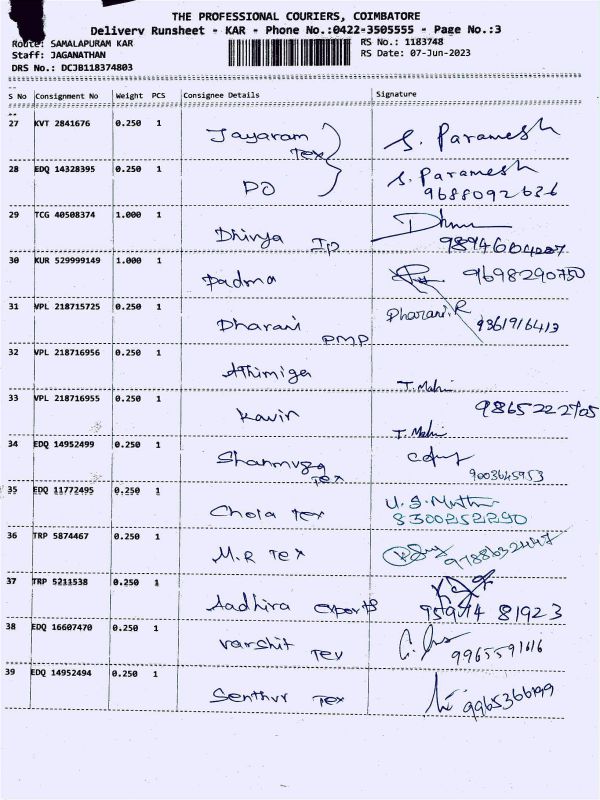 THE PROFESSIONAL COURIERS, COIMBATORE
Delivery Runsheet - KAR - Phone No.:0422-3505555 - Page No.:3
Route: SAMALAPURAM KAR
RS No.: 1183748
Staff: JAGANATHAN
RS Date: 07-Jun-2023
DRS No.: DCJB118374803
S No Consignment No Weight PCS Consignee Details Signature
27 KVT 2841676 0.250 1 Jayaram Tex S. Paramesh
28 EDQ 14328395 0.250 1 DO S. Paramesh
9688092636
29 TCG 40508374 1.000 1 Dhivya
30 KUR 529999149 1.000 1 Padma 9698290750
31 VPL 218715725 0.250 1 Dharani PMP Dharani.R 9361916413
32 VPL 218716956 0.250 1 Athimiga T. Mahi
33 VPL 218716955 0.250 1 Kavin 9865222705
T. Mahi
34 EDQ 14952499 0.250 1 Shanmuga Tex
9003645953
35 EDQ 11772495 0.250 1 Chola Tex
8300252290
36 TRP 5874467 0.250 1 M.R Tex 9788632447
37 TRP 5211538 0.250 1 Aadhira exports
95974 81923
38 EDQ 16607470 0.250 1 Varshit Tex 9965591616
39 EDQ 14952494 0.250 1 Senthur Tex 9965366199